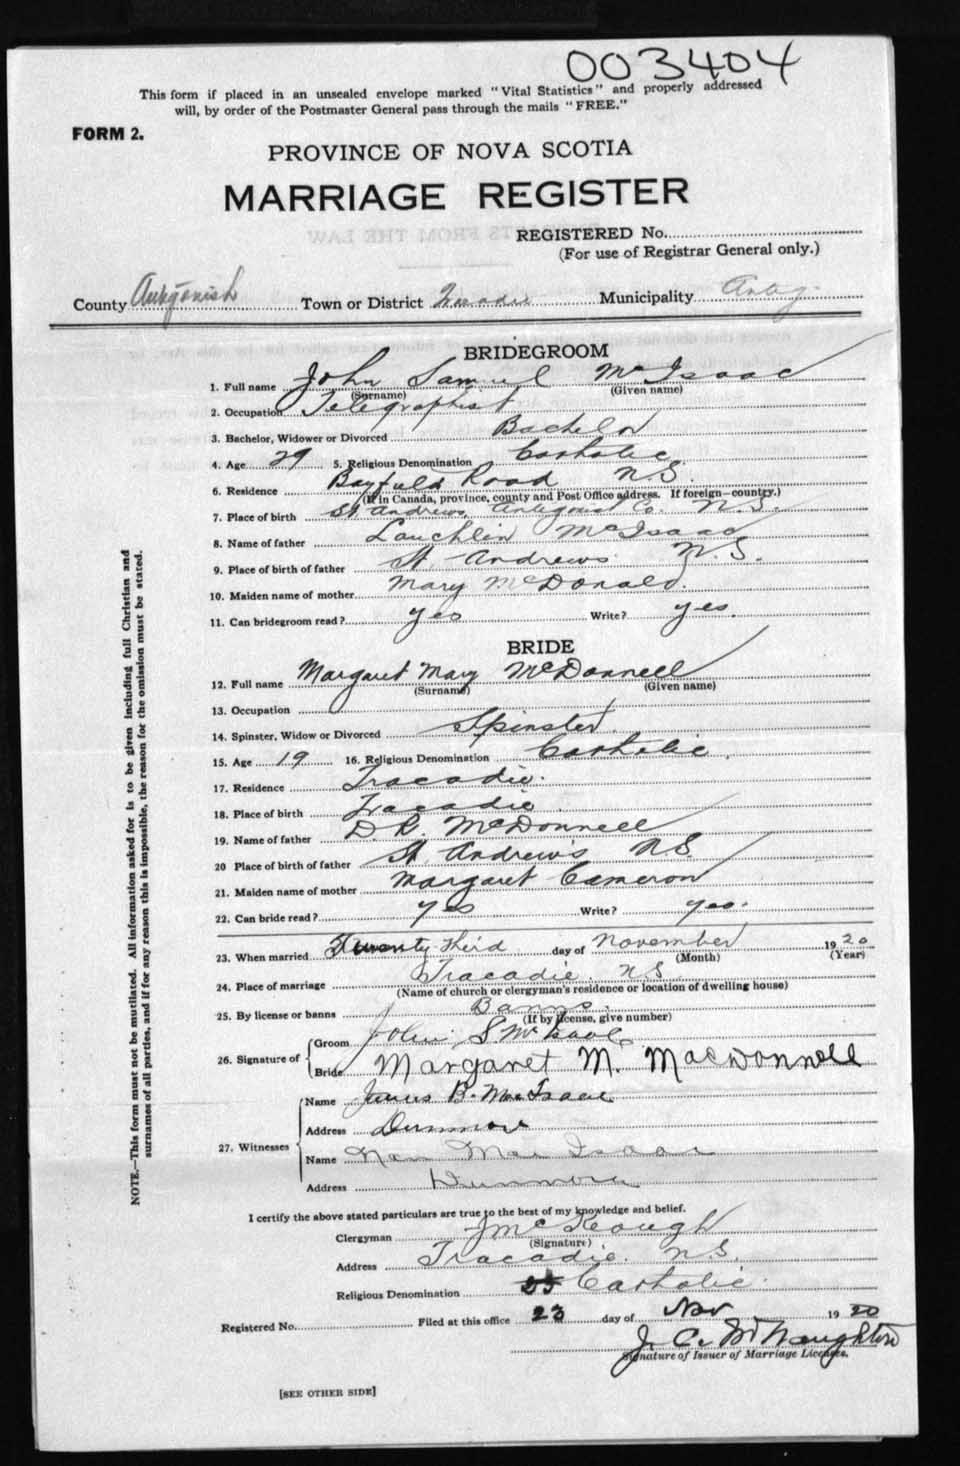 003404
This form if placed in an unsealed envelope marked "Vital Statistics" and properly addressed
will, by order of the Postmaster General pass through the mails "FREE."
FORM 2.
PROVINCE OF NOVA SCOTIA
MARRIAGE REGISTER
REGISTERED No.
(For use of Registrar General only.)
County Antigonish Town or District Tracadie Municipality Antig.
BRIDEGROOM
1. Full name John Samuel McIsaac
(Surname) (Given name)
2. Occupation Telegraphist
3. Bachelor, Widower or Divorced Bachelor
4. Age 29 5. Religious Denomination Catholic
6. Residence Bayfield Road N.S.
(If in Canada, province, county and Post Office address. If foreign—country.)
7. Place of birth St. Andrews, Antigonish Co. N.S.
8. Name of father Lauchlin McIsaac
9. Place of birth of father St. Andrews N.S.
10. Maiden name of mother Mary McDonald.
11. Can bridegroom read? yes Write? yes.
BRIDE
12. Full name Margaret Mary McDonnell
(Surname) (Given name)
13. Occupation
14. Spinster, Widow or Divorced Spinster
15. Age 19 16. Religious Denomination Catholic
17. Residence Tracadie.
18. Place of birth Tracadie
19. Name of father D.R. McDonnell
20 Place of birth of father St. Andrews N.S.
21. Maiden name of mother Margaret Cameron
22. Can bride read? yes Write? yes.
23. When married Twenty third day of November 1920
(Month) (Year)
24. Place of marriage Tracadie N.S.
(Name of church or clergyman's residence or location of dwelling house)
25. By license or banns Banns.
(If by license, give number)
26. Signature of
Groom John S McIsaac
Bride Margaret M. MacDonnell
27. Witnesses
Name James B. MacIsaac
Address Dunmore
Name Nan MacIsaac
Address Dunmore
I certify the above stated particulars are true to the best of my knowledge and belief.
Clergyman J McKeough
(Signature)
Address Tracadie. N.S.
Religious Denomination Catholic.
Registered No. Filed at this office 23 day of Nov 1920
J. C. McNaughton
Signature of Issuer of Marriage Licenses.
[SEE OTHER SIDE]
NOTE.—This form must not be mutilated. All information asked for is to be given including full Christian and
surnames of all parties, and if for any reason this is impossible, the reason for the omission must be stated.